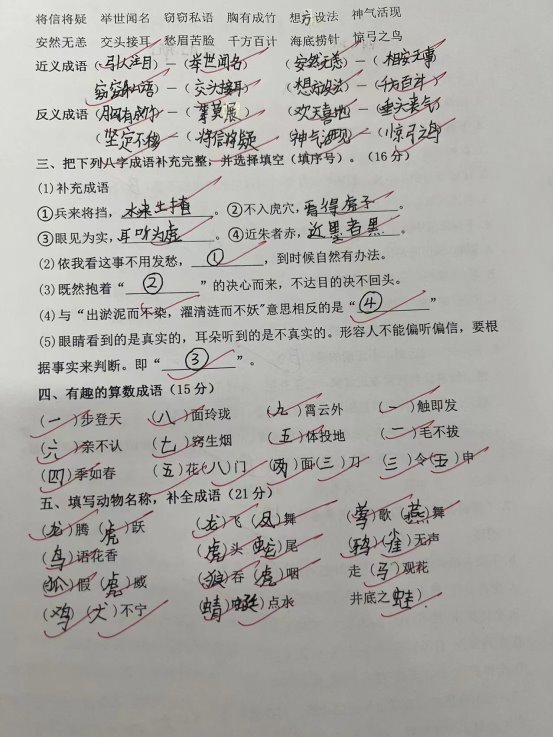 将信将疑 举世闻名 窃窃私语 胸有成竹 想方设法 神气活现
安然无恙 交头接耳 愁眉苦脸 千方百计 海底捞针 惊弓之鸟
近义成语（引人注目）—（举世闻名） （安然无恙）—（相安无事）
（窃窃私语）—（交头接耳） （想方设法）—（千方百计）
反义成语（胸有成竹）—（ 一莫展） （欢天喜地）—（垂头丧气）
（坚定不移）—（将信将疑） （神气活现）—（惊弓之鸟）
三、把下列八字成语补充完整，并选择填空（填序号）。（16 分）
(1)补充成语
①兵来将挡，水来土掩。②不入虎穴，焉得虎子。
③眼见为实，耳听为虚。④近朱者赤，近墨者黑。
(2)依我看这事不用发愁，①，到时候自然有办法。
(3)既然抱着“②”的决心而来，不达目的决不回头。
(4)与“出淤泥而不染，濯清涟而不妖”意思相反的是“④”
(5)眼睛看到的是真实的，耳朵听到的是不真实的。形容人不能偏听偏信，要根
据事实来判断。即“③”。
四、有趣的算数成语（15 分）
（一）步登天 （八）面玲珑 （九）霄云外 （一）触即发
（六）亲不认 （七）窍生烟 （五）体投地 （一）毛不拔
（四）季如春 （五）花（八）门 （两）面（三）刀 （三）令（五）申
五、填写动物名称，补全成语（21 分）
（龙）腾（虎）跃 （龙）飞（凤）舞 （莺）歌（燕）舞
（鸟）语花香 （虎）头（蛇）尾 （鸦）（雀）无声
（狐）假（虎）威 （狼）吞（虎）咽 走（马）观花
（鸡）（犬）不宁 （蜻）（蜓）点水 井底之（蛙）